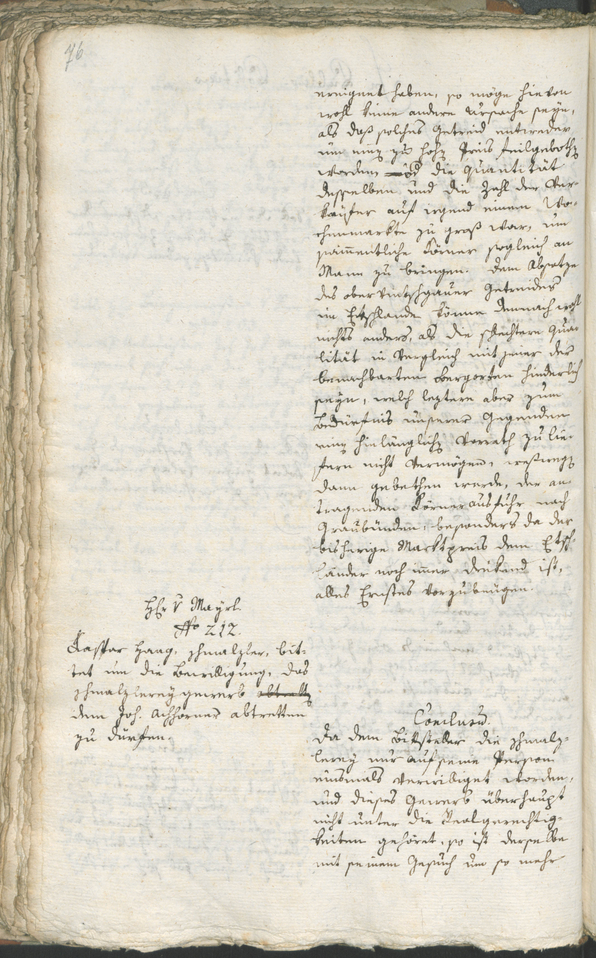 76
ereignet haben, so möge hievon
wohl keine andere Ursache seyn,
als daß solches Getreid entweder
um einen zu hohen Preis feilgebothen
worden, oder die Quantität
desselben und die Zahl der Ver-
käufer auf irgend einem Wo-
chenmarkte zu groß war, um
sämmentliche Körner sogleich an
Mann zu bringen. Dem Absatze
des obervintschgauer Getreides
im Etschlande könne demnach wohl
nichts anders, als die schlechtere Qua-
lität in Vergleich mit jener der
benachbarten Bergorten hinderlich
seyn, welch letztere aber zum
Bedürfnis unserer Gegenden
einen hinlänglichen Vorrath zu lie-
fern nicht vermögen, weßwegen
dann gebethen werde, der an-
tragenden Körnerausfuhr nach
Graubünden, besonders da der
bisherige Marktpreis dem Etsch-
länder noch immer drükend ist,
alles Ernstes vorzubeugen.
Hr v Mayrl.
No 212.
Kaspar Haag, Schmalzler, bit-
tet um die Bewilligung, das
Schmalzlereygewerb
dem Joh. Achhorner abtretten
zu dürfen.
Conclusu.
Da dem Bittsteller die Schmalz-
lerey nur auf seine Person
einsmals verwilliget worden,
und dieses Gewerb überhaupt
nicht unter die Realgerechtig-
keiten gehöret, so ist derselbe
mit seinem Gesuch um so mehr